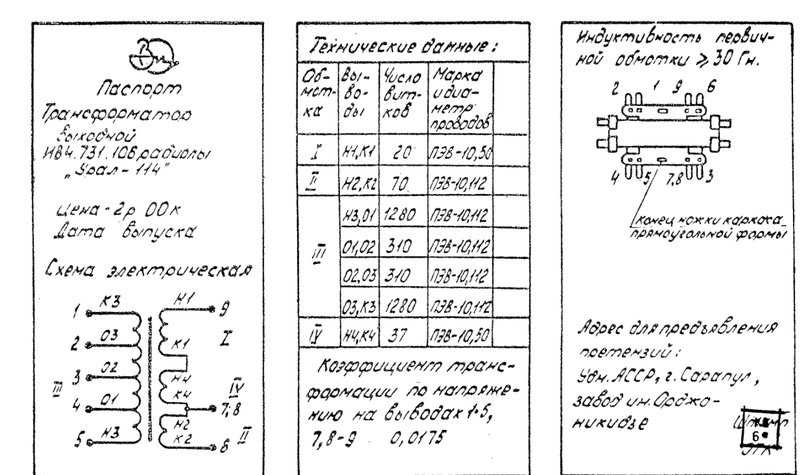 Паспорт
Трансформатор
выходной
ИВ4.731.106, радиолы
„Урал-114"
Цена - 2р 00к
Дата выпуска
Схема электрическая
1 К3 Н1 9
2 О3 К1 I
3 О2 Н4
III К4 IV
4 О1 7,8
Н2
5 Н3 К2 6 II
Технические данные:
Обмот-ка Выво-ды Число вит-ков Марка и диа-метр проводов
I Н1,К1 20 ПЭВ-10,50
II Н2,К2 70 ПЭВ-10,112
Н3,О1 1280 ПЭВ-10,112
III О1,О2 310 ПЭВ-10,112
О2,О3 310 ПЭВ-10,112
О3,К3 1280 ПЭВ-10,112
IV Н4,К4 37 ПЭВ-10,50
Коэффициент транс-
формации по напряже-
нию на выводах 1-5,
7,8-9 0,0175
Индуктивность первич-
ной обмотки ≥ 30 Гн.
2 1 9 6
4 5 7,8 3
конец ножки каркаса
прямоугольной формы
Адрес для предъявления
претензий:
Удм. АССР, г. Сарапул,
завод им. Орджо-
никидзе
6